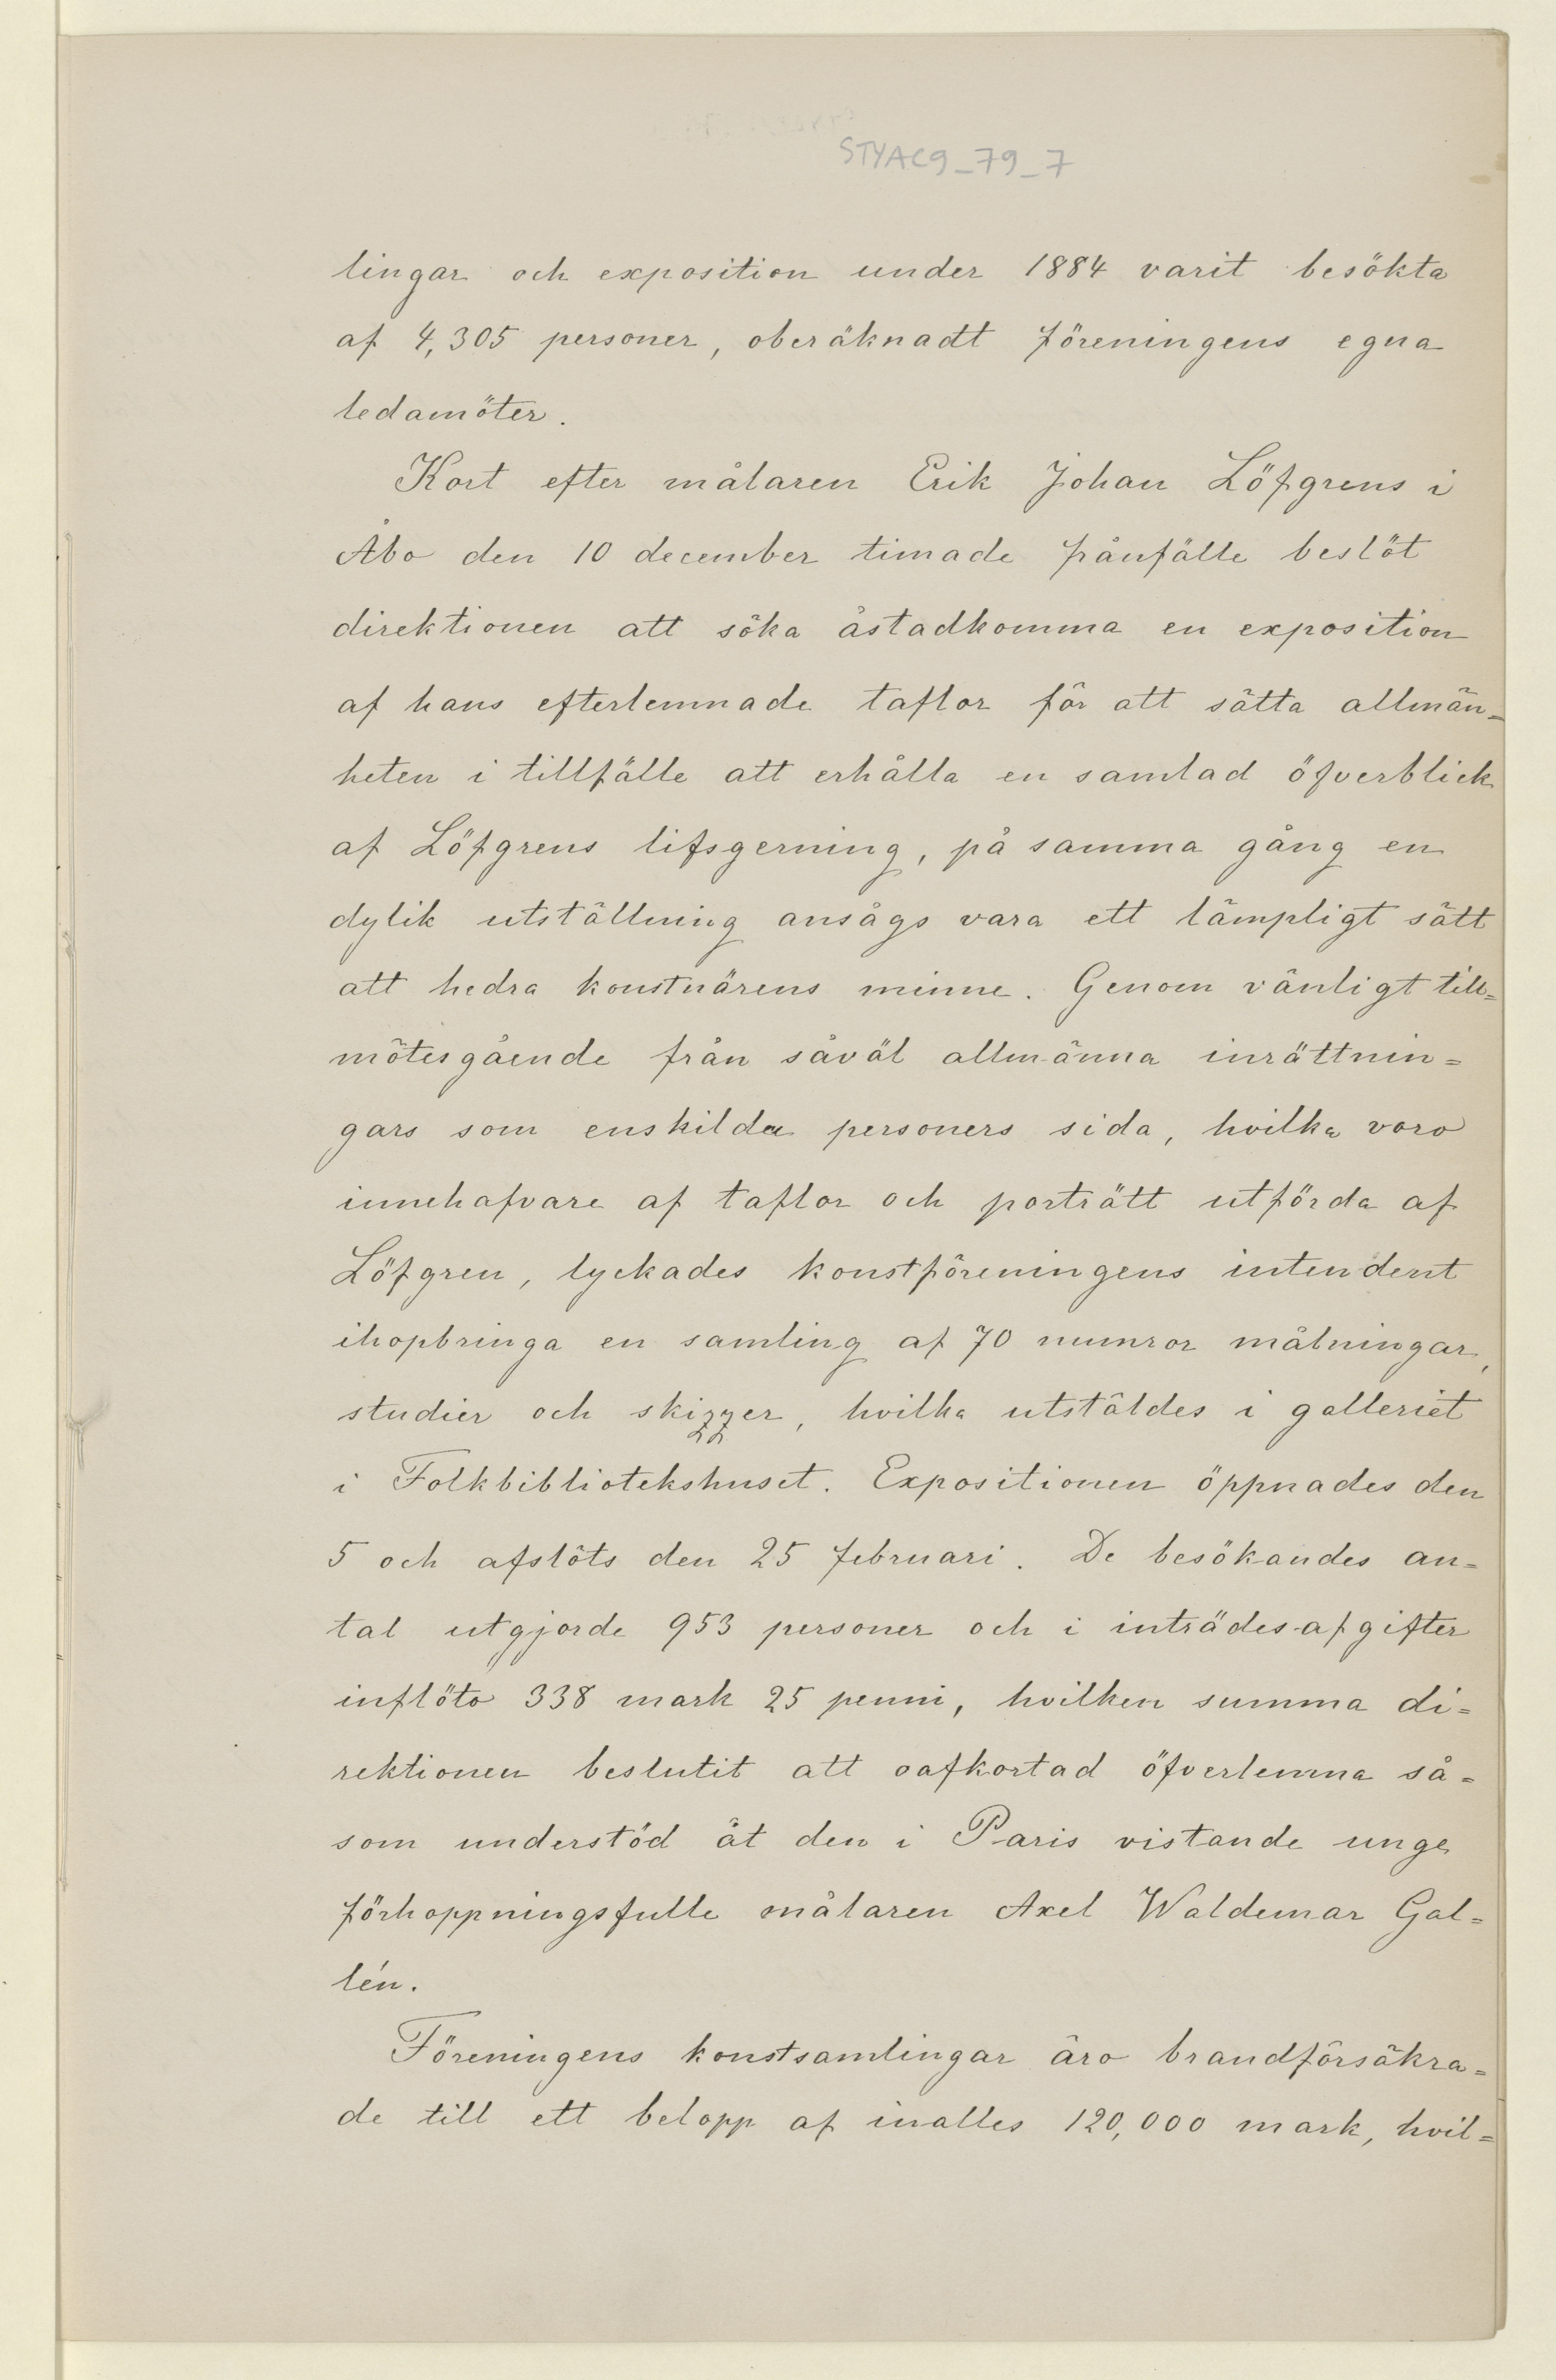 STYAC9_79_7
lingar och exposition under 1884 varit besökta
af 4,305 personer, oberäknadt föreningens egna
ledamöter.
Kort efter målaren Erik Johan Löfgrens i
Åbo den 10 december timade frånfälle beslöt
direktionen att söka åstadkomma en exposition
af hans efterlemnade taflor för att sätta allmän=
heten i tillfälle att erhålla en samlad öfverblick
af Löfgrens lifsgerning, på samma gång en
dylik utställning ansågs vara ett lämpligt sätt
att hedra konstnärens minne. Genom vänligt till=
mötesgående från såväl allmänna inrättnin=
gars som enskilda personers sida, hvilka voro
innehafvare af taflor och porträtt utförda af
Löfgren, lyckades konstföreningens intendent
ihopbringa en samling af 70 numror målningar,
studier och skizzer, hvilka utstäldes i galleriet
i Folkbibliotekshuset. Expositionen öppnades den
5 och afslöts den 25 februari. De besökandes an=
tal utgjorde 953 personer och i inträdesafgifter
inflöto 338 mark 25 penni, hvilken summa di=
rektionen beslutit att oafkortad öfverlemna så=
som understöd åt den i Paris vistande unge
förhoppningsfulle målaren Axel Waldemar Gal=
lén.
Föreningens konstsamlingar äro brandförsäkra=
de till ett belopp af inalles 120,000 mark, hvil=